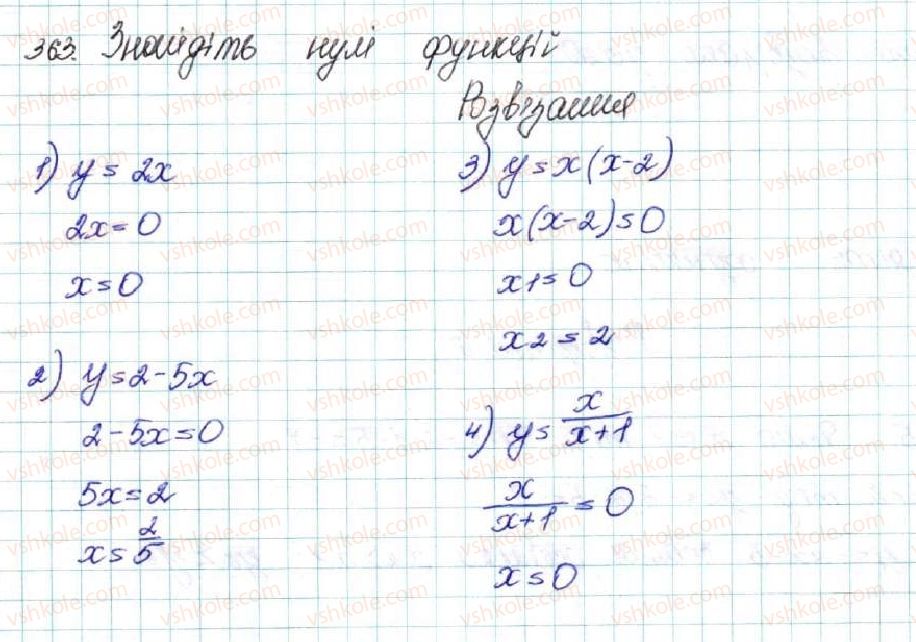 363. Знайдіть нулі функцій
Розвізання
1) y = 2x
2x = 0
x = 0
2) y = 2 - 5x
2 - 5x = 0
5x = 2
x = 2/5
3) y = x(x-2)
x(x-2) = 0
x1 = 0
x2 = 2
4) y = x/(x+1)
x/(x+1) = 0
x = 0